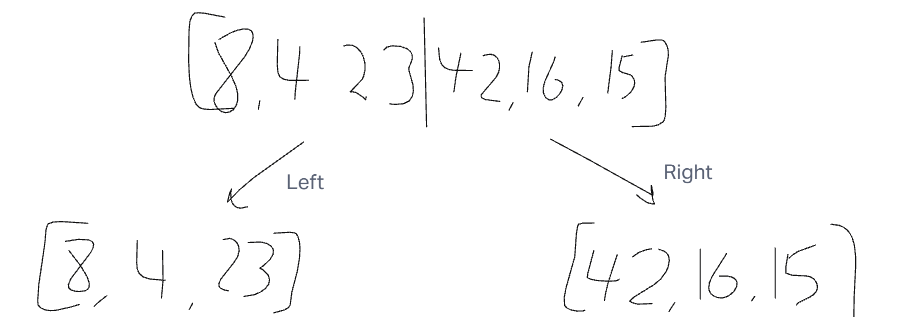 [8, 4 23|42, 16, 15]
Left
Right
[8, 4, 23]
[42, 16, 15]